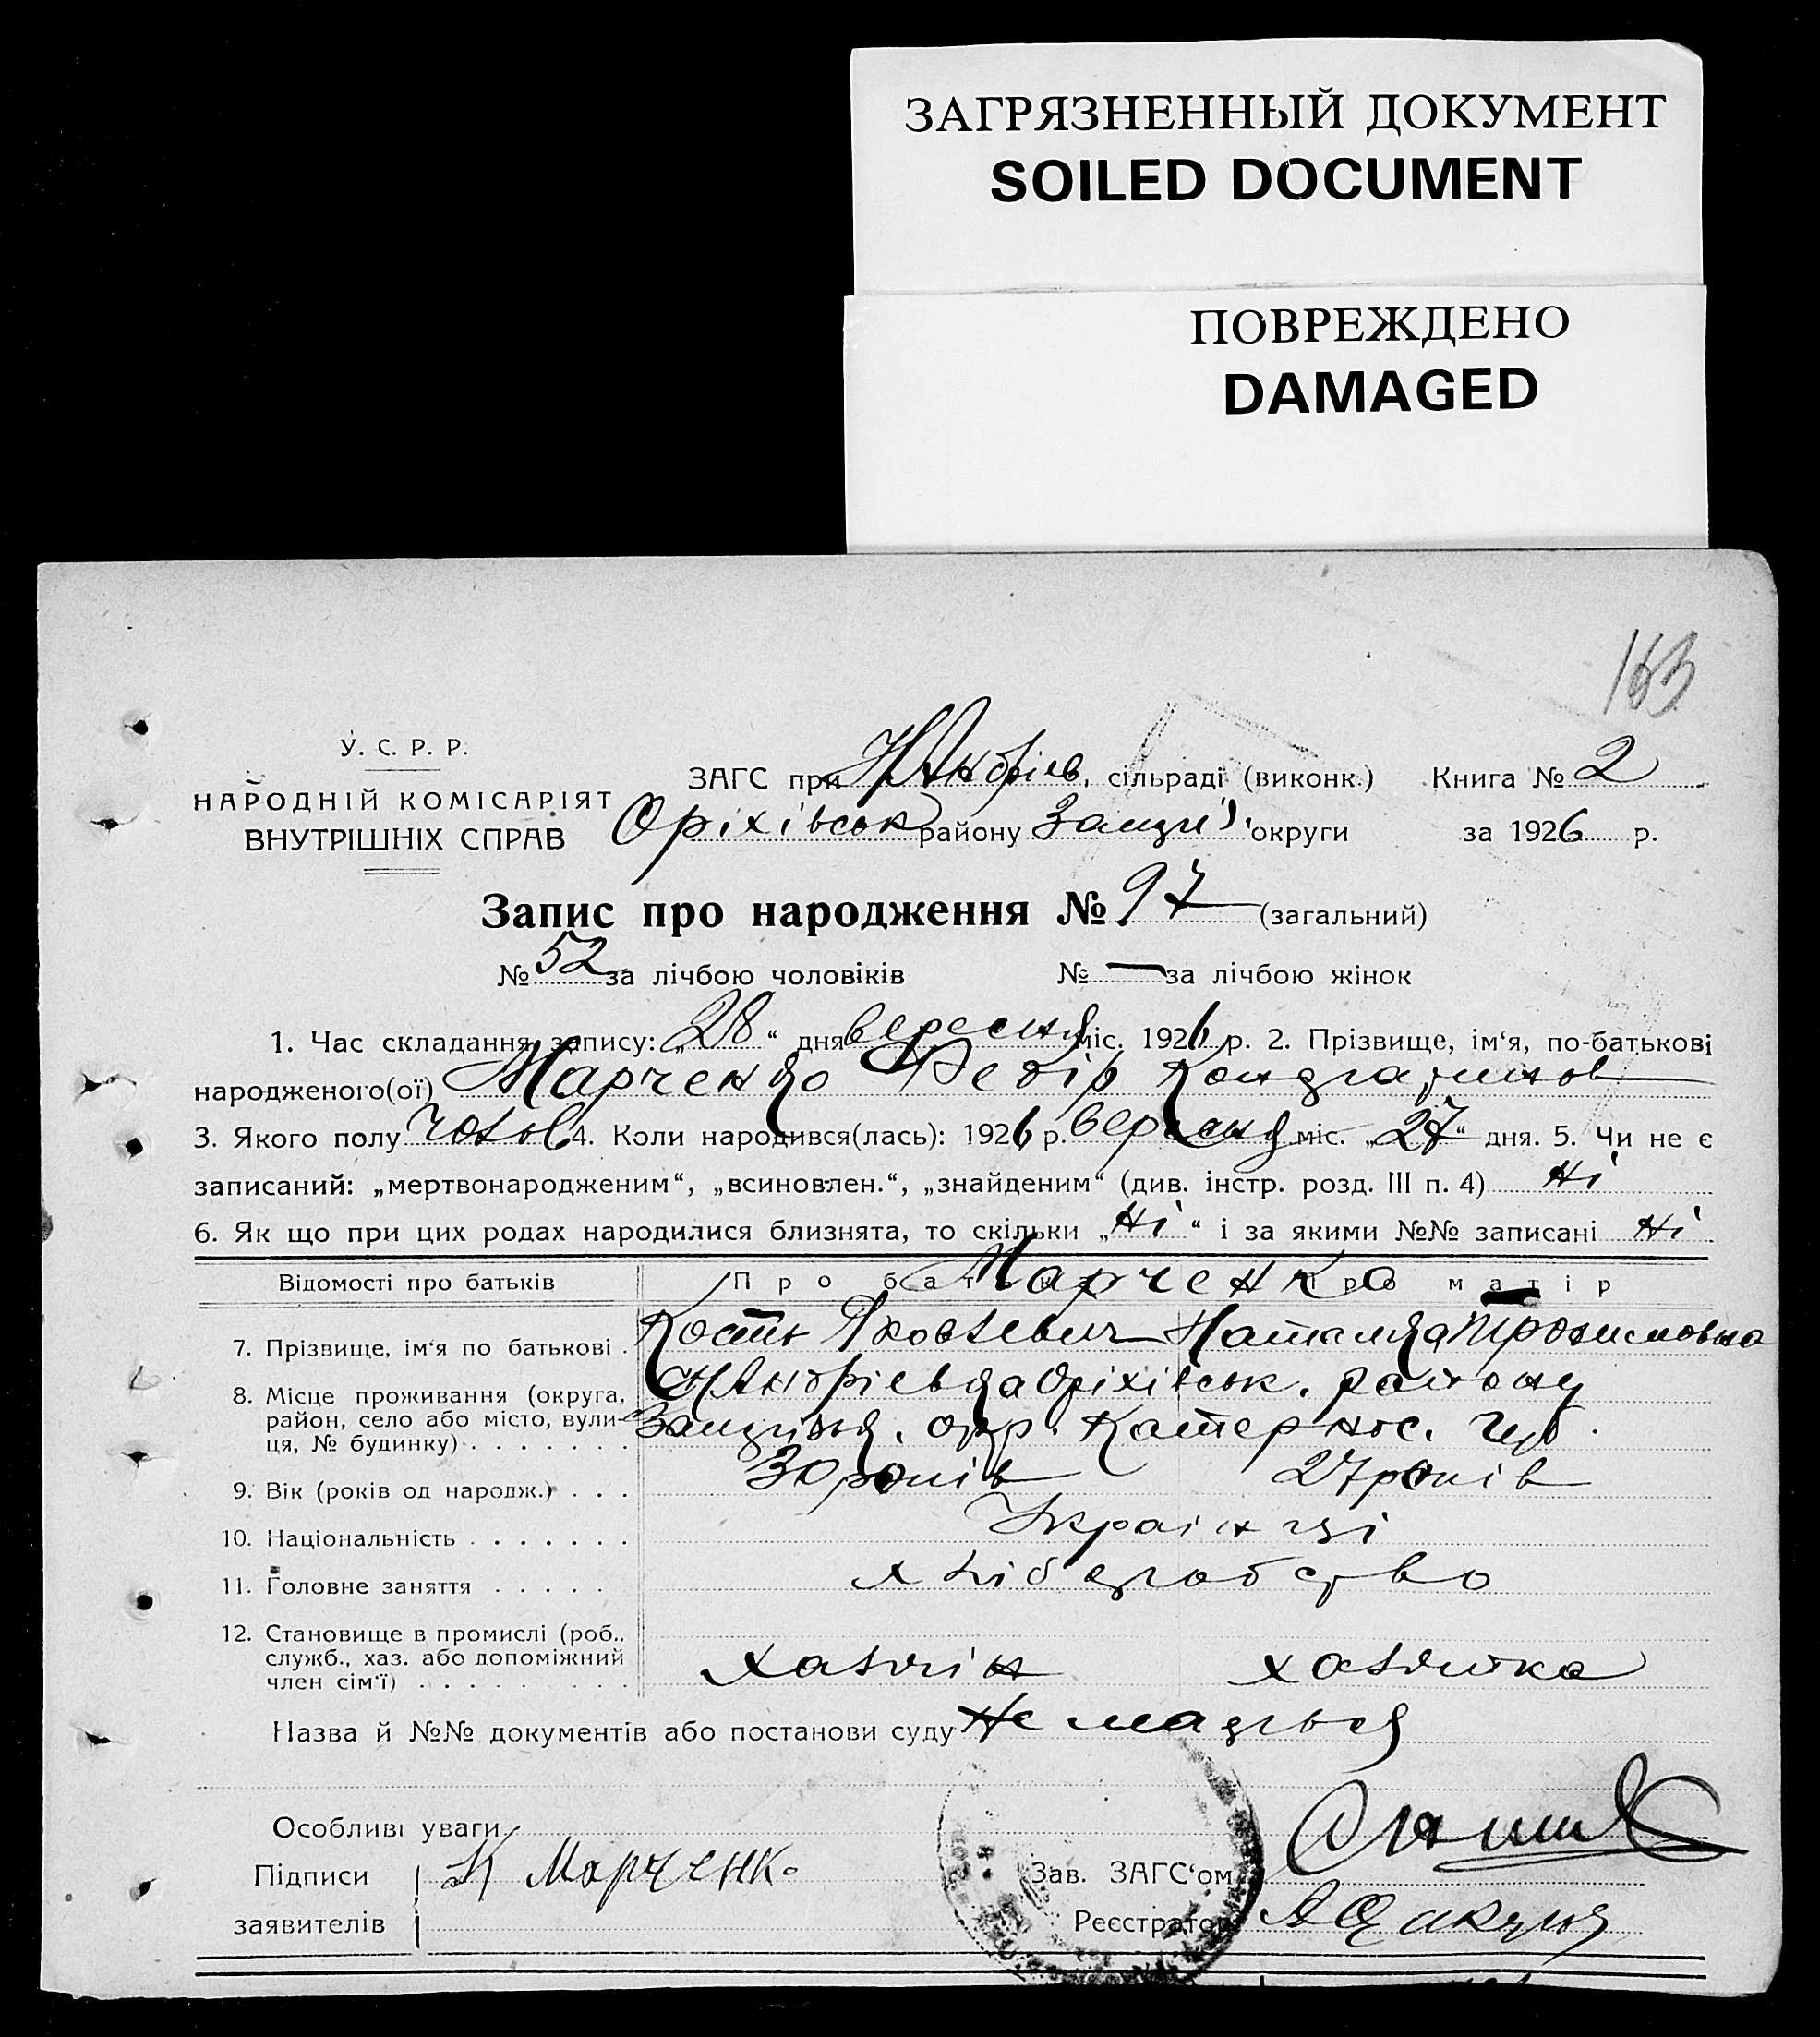 ЗАГРЯЗНЕННЫЙ ДОКУМЕНТ
SOILED DOCUMENT
ПОВРЕЖДЕНО
DAMAGED
163
У. С. Р. Р.
НАРОДНІЙ КОМІСАРІЯТ
ВНУТРІШНІХ СПРАВ
ЗАГС при Н Андріев. сільраді (виконк.) Книга № 2
Оріхівськ району Запоріз. округи за 1926 р.
Запис про народження № 97 (загальний)
№ 52 за лічбою чоловіків № — за лічбою жінок
1. Час складання запису: „28“ дня вересня міс. 1926 р. 2. Прізвище, ім‘я, по-батькові
народженого(ої) Марченко Федір
3. Якого полу чолов 4. Коли народився(лась): 1926 р. вересня міс. „27“ дня. 5. Чи не є
записаний: „мертвонародженим“, „всиновлен.“, „знайденим“ (див. інстр. розд. III п. 4) Ні
6. Як що при цих родах народилися близнята, то скільки „Ні“ і за якими №№ записані Ні
Відомості про батьків Про батька Про матір
Марченко
7. Прізвище, ім‘я по батькові . Кость Яковлевич Наталя
8. Місце проживання (округа, район, село або місто, вулиця, № будинку) . . . . . . . Андріевка Оріхівськ. району
окр. Катеринос. губ.
9. Вік (років од народж.) . . . 30 років 27 років
10. Національність . . . . . . . Українці
11. Головне заняття . . . . . хліборобство
12. Становище в промислі (роб., служб., хаз. або допоміжний член сім‘ї) . . . . . . . . . хазяїн хазяйка
Назва й №№ документів або постанови суду Не мається
Особливі уваги
Підписи К Марченко Зав. ЗАГС‘ом
заявителів Реєстратор